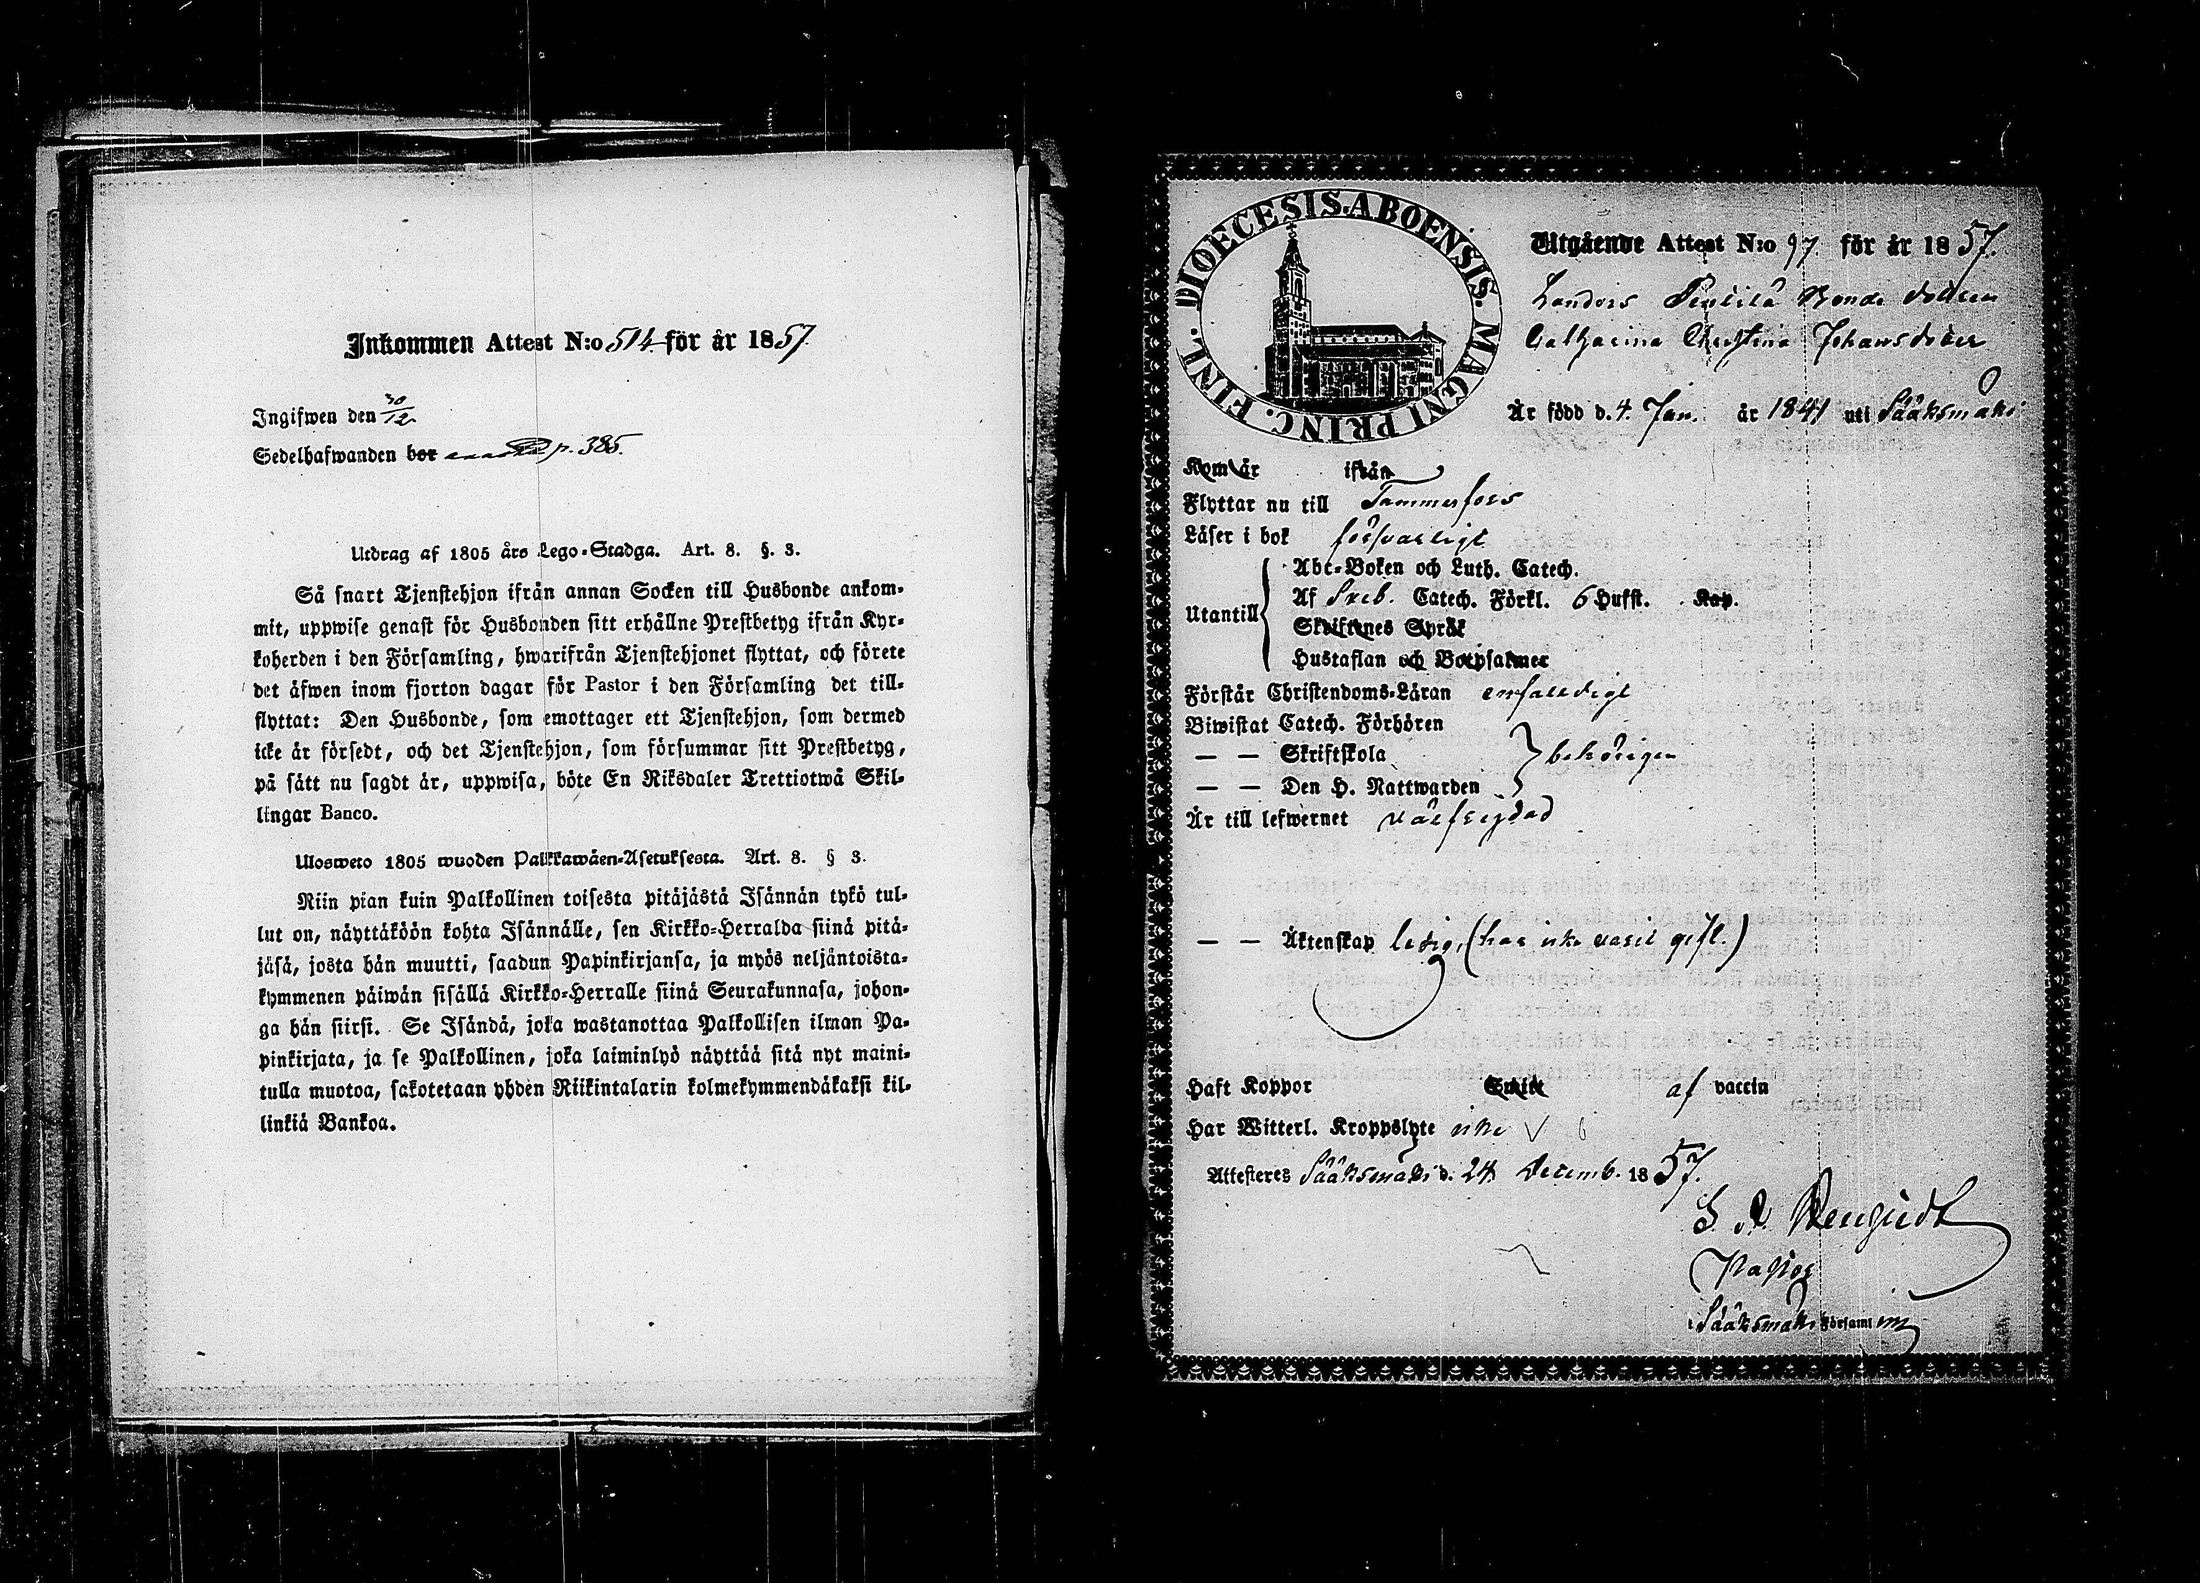 Inkommen Attest N:o 514 för år 1857.
Ingifwen den 30/12
Sedelhafwanden bor p. 385.
Utdrag af 1805 års Lego-Stadga. Art. 8. §. 3.
Så snart Tjenstehjon ifrån annan Socken till Husbonde ankom-
mit, uppwise genast för Husbonden sitt erhållne Prestbetyg ifrån Kyr-
koherden i den Församling, hwarifrån Tjenstehjonet flyttat, och förete
det äfwen inom fjorton dagar för Pastor i den Församling det till-
flyttat: Den Husbonde, som emottager ett Tjenstehjon, som dermed
icke är försedt, och det Tjenstehjon, som försummar sitt Prestbetyg,
på sätt nu sagdt är, uppwisa, böte En Riksdaler Trettiotwå Skil-
lingar Banco.
Ulosweto 1805 wuoden Palkkawäen-Asetuksesta. Art. 8. § 3.
Niin pian kuin Palkollinen toisesta pitäjästä Isännän tykö tul-
lut on, näyttäköön kohta Isännälle, sen Kirkko-Herralda siinä pitä-
jäsä, josta hän muutti, saadun Papinkirjansa, ja myös neljäntoista-
kymmenen päiwän sisällä Kirkko-Herralle siinä Seurakunnasa, johon-
ga hän siirsi. Se Isändä, joka wastanottaa Palkollisen ilman Pa-
pinkirjata, ja se Palkollinen, joka laiminlyö näyttää sitä nyt maini-
tulla muotoa, sakotetaan yhden Riikintalarin kolmekymmendäkaksi kil-
linkiä Bankoa.
DIOECESIS. ABOENSIS. MAGNI PRINC. FINL.
Utgående Attest N:o 97 för år 1857.
Bonde dottren
Catharina Christina Johansdotter
Är född d. 4. Jan. år 1841 uti Sääksmäki
Kom år ifrån
Flyttar nu till Tammerfors
Läser i bok försvarligt
Utantill
Abc-Boken och Luth. Catech.
Af Sveb. Catech. Förkl. 6 Hufst. Kap.
Skriftenes Språk
Hustaflan och Botpsalmer
Förstår Christendoms-Läran enfaldigt
Biwistat Catech. Förhören
— — Skriftskola behörigen
— — Den H. Nattwarden
Är till lefwernet välfrejdad
— — Äktenskap ledig, (har icke varit gift.)
Haft Koppor Smitt af vaccin
Har Witterl. Kroppslyte icke
Attesteres Sääksmäki d. 24. Decemb. 1857.
Pastor
i Sääksmäki Församl